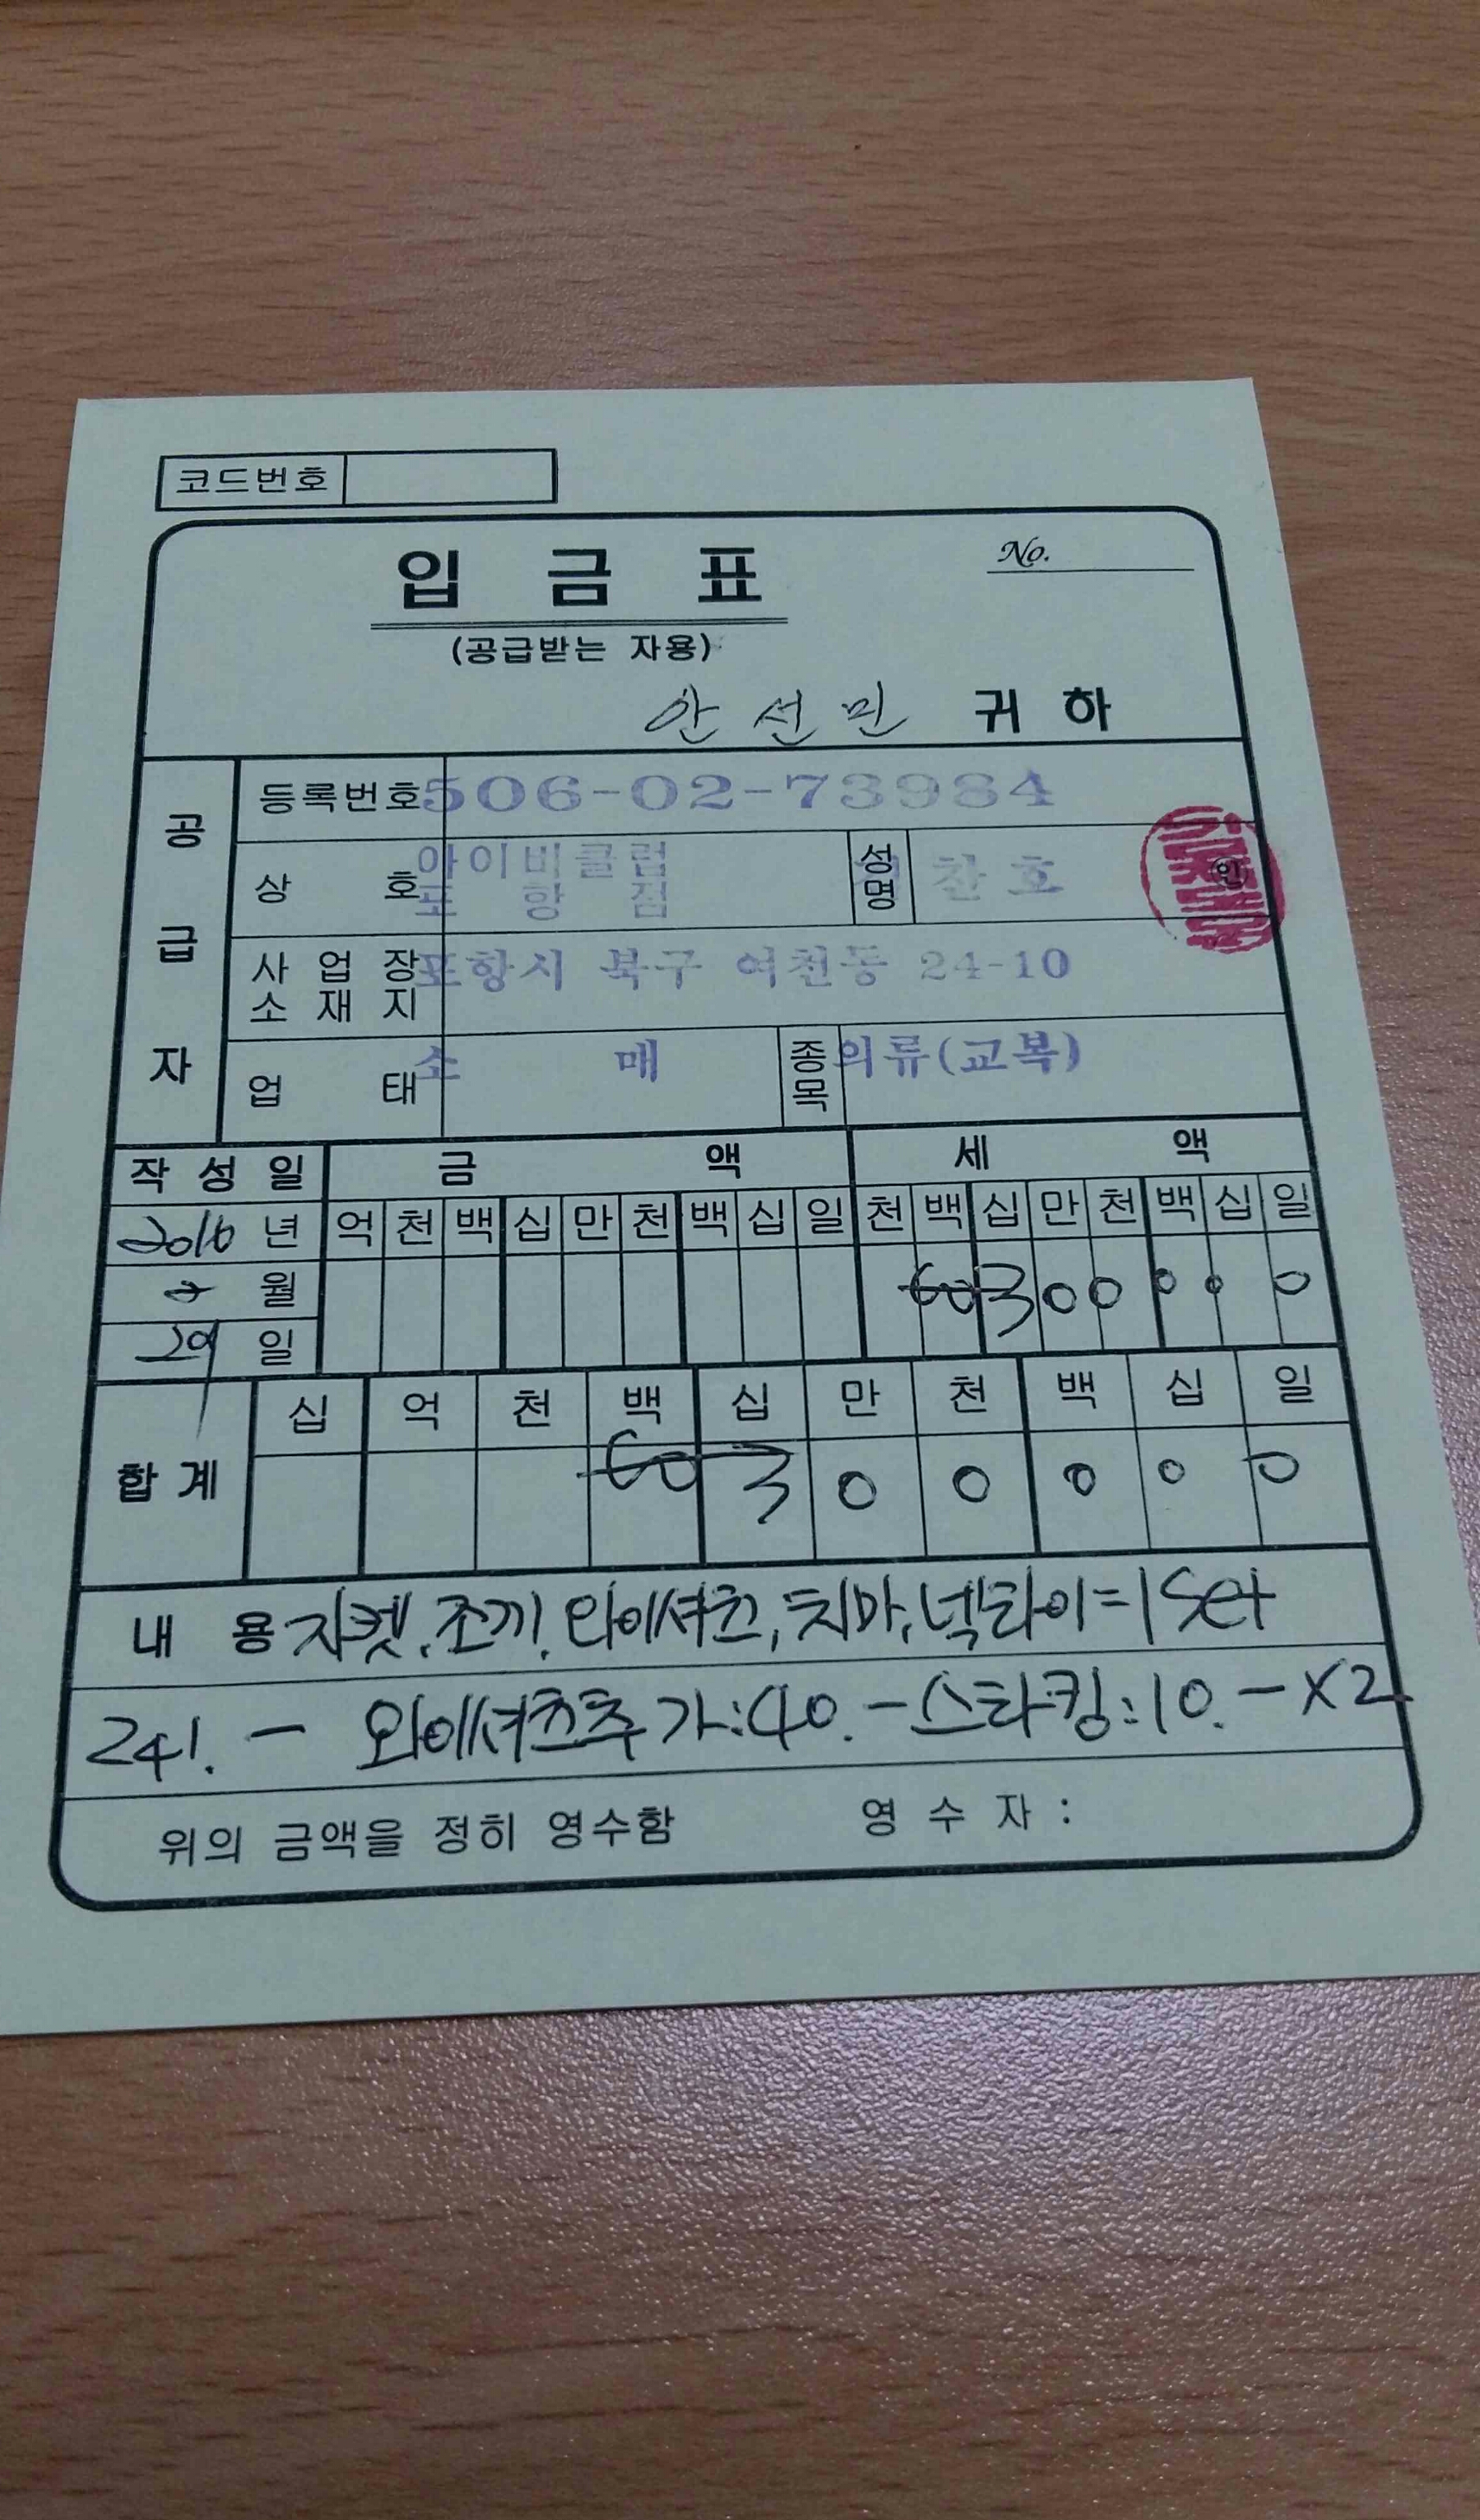 코드번호
입 금 표
No.
(공급받는 자용)
안선민 귀 하
공급자
등록번호 506-02-73984
상 호 아이비클럽 포항점 성명 찬호 인
사업장소재지 포항시 북구 여천동 24-10
업 태 소 매 종목 의류(교복)
작성일 금 액 세 액
2016 년 억 천 백 십 만 천 백 십 일 천 백 십 만 천 백 십 일
월 3 0 0 0 0 0
29 일
합계 십 억 천 백 십 만 천 백 십 일
3 0 0 0 0 0
내 용 자켓, 조끼, 와이셔츠, 치마, 넥타이=1 Set
241.- 와이셔츠추가:40.- 스타킹:10.-X2
위의 금액을 정히 영수함 영 수 자 :